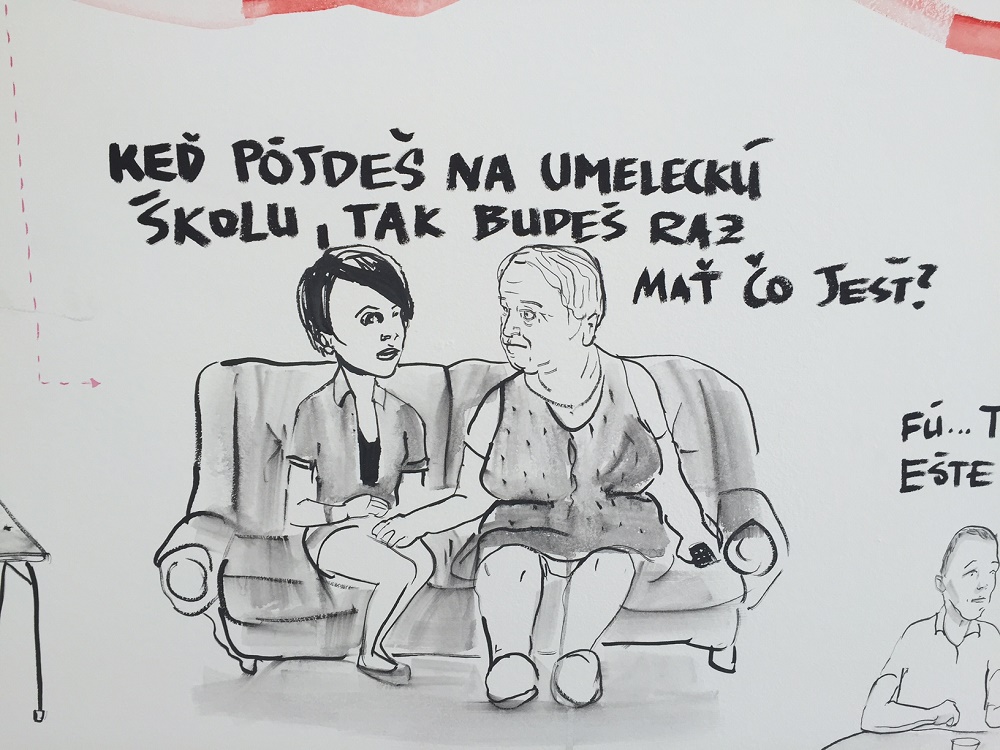 KEĎ PÓJDEŠ NA UMELECKÚ
ŠKOLU, TAK BUDEŠ RAZ
MAŤ ČO JESŤ?
FÚ...
EŠTE